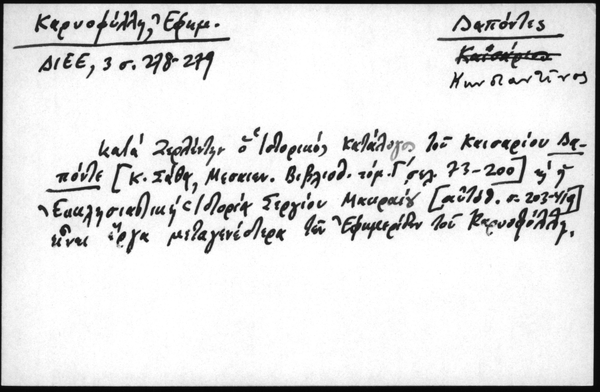 Καρυοφύλλη, Ἐφημ.
Δαπόντες
ΔΙΕΕ, 3 σ. 278-279
Καισάριος
Κωνσταντῖνος
Κατὰ Ζερλέντην ὁ Ἱστορικός Κατάλογος τοῦ Καισαρίου Δα-
πόντε [Κ. Σάθα, Μεσαιων. Βιβλιοθ. τόμ. Γ΄ σελ. 73-200] κ ἡ
Ἐκκλησιαστική Ἱστορία Σεργίου Μακραίου [αὐτόθ. σ. 203-419]
εἶναι ἔργα μεταγενέστερα τῶν Ἐφημερίδων τοῦ Καρυοφύλλη.